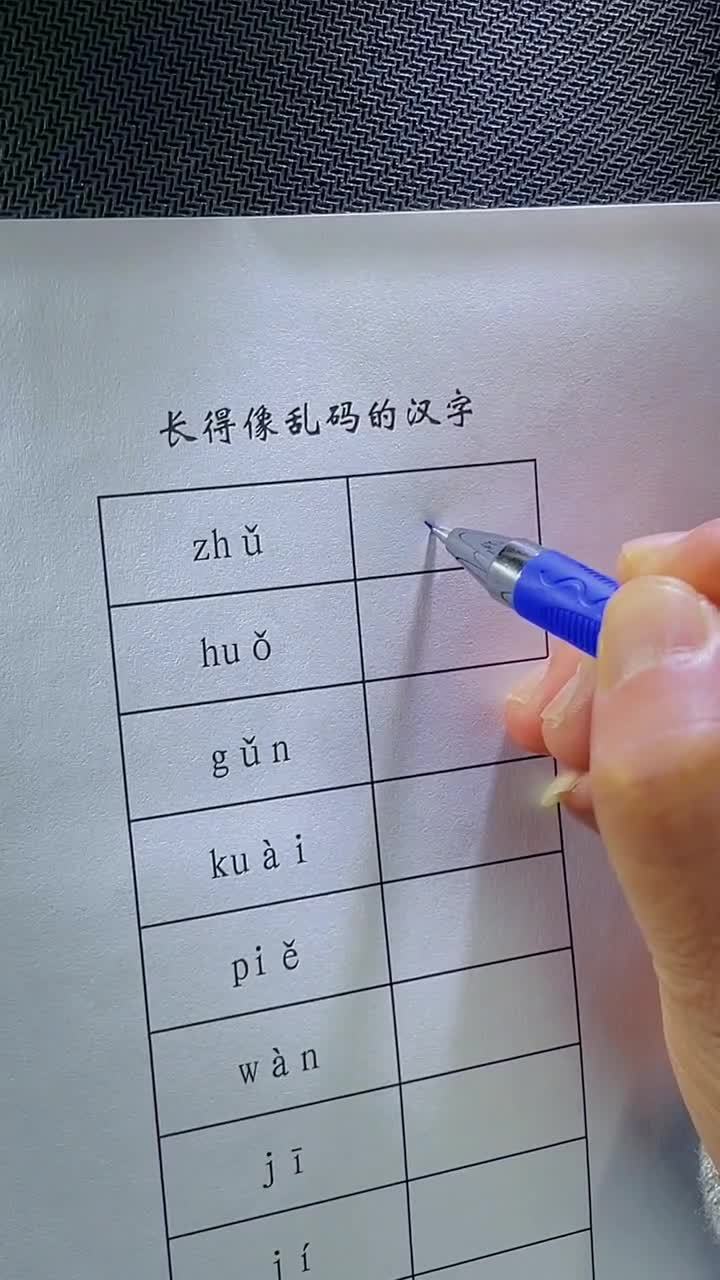 长得像乱码的汉字
zhǔ
huǒ
gǔn
kuài
piě
wàn
jī
jí